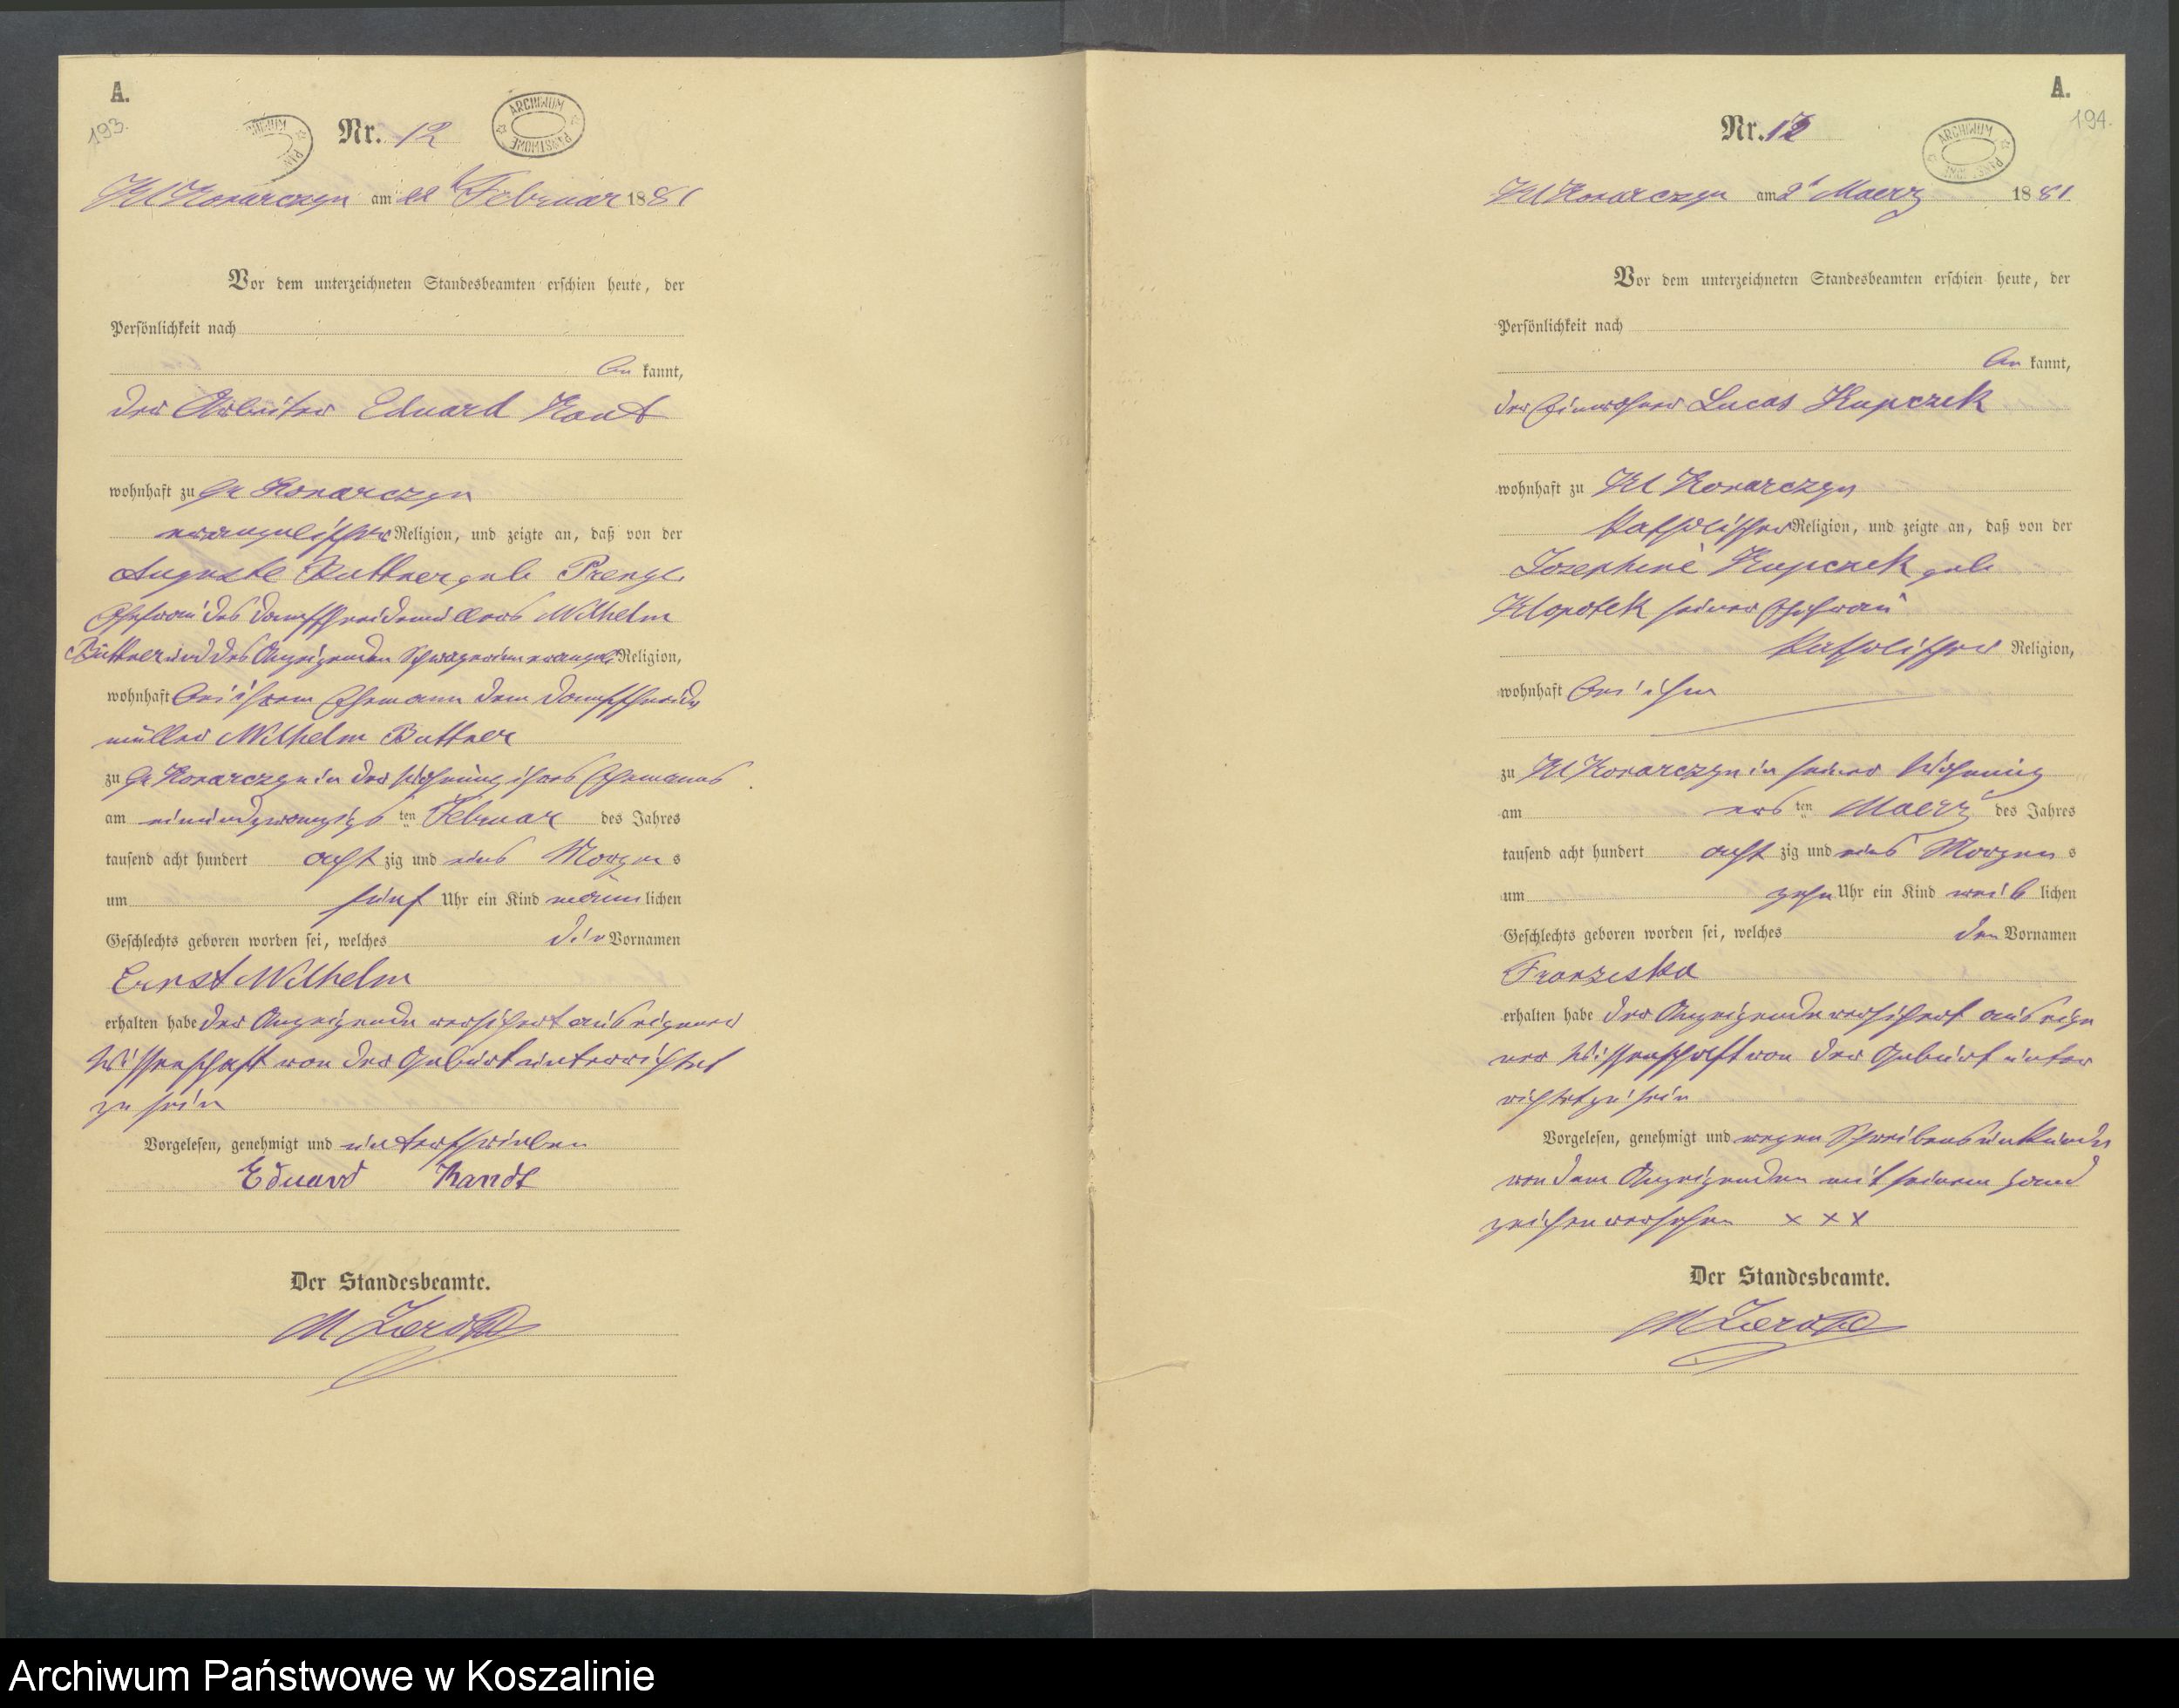 A.
193.
Nr. 12
ARCHIWUM PAŃSTWOWE
Kl Konarczyn am 22t Februar 1881
Vor dem unterzeichneten Standesbeamten erschien heute, der
Persönlichkeit nach
be kannt,
der Arbeiter Eduard Kant
wohnhaft zu Gr Konarczyn
evangelischer Religion, und zeigte an, daß von der
Auguste Buttner geb
Ehefrau des Dampfschneidemüllers Wilhelm
Büttner und des Anzeigenden Schwägerin evangel. Religion,
wohnhaft bei ihrem Ehemann dem Dampfschneide
müller Wilhelm Buttner
zu Gr Konarczyn in der Wohnung ihres Ehemanns
am einundzwanzigs ten Februar des Jahres
tausend acht hundert acht zig und eins Morgens
um fünf Uhr ein Kind männlichen
Geschlechts geboren worden sei, welches die Vornamen
Ernst Wilhelm
erhalten habe der Anzeigende versichert aus eigener
Wissenschaft von der Geburt unterrichtet
zu sein
Vorgelesen, genehmigt und unterschrieben
Eduard Kandt
Der Standesbeamte.
A.
194.
Nr. 12
ARCHIWUM PAŃSTWOWE
Kl Konarczyn am 2t Maerz 1881
Vor dem unterzeichneten Standesbeamten erschien heute, der
Persönlichkeit nach
be kannt,
der Einwohner Lucas Kupczek
wohnhaft zu Kl Konarczyn
katholischer Religion, und zeigte an, daß von der
Josephine Kupczek geb
Klopotek seiner Ehefrau
katholischer Religion,
wohnhaft bei ihm
zu Kl Konarczyn in seiner Wohnung
am ers ten Maerz des Jahres
tausend acht hundert acht zig und eins Morgens
um zehn Uhr ein Kind weiblichen
Geschlechts geboren worden sei, welches den Vornamen
Franziska
erhalten habe der Anzeigende versichert aus eige
ner Wissenschaft von der Geburt unter
richtet zu sein
Vorgelesen, genehmigt und wegen Schreibensunkunde
von dem Anzeigenden mit seinem Hand
zeichen versehen x x x
Der Standesbeamte.
Archiwum Państwowe w Koszalinie